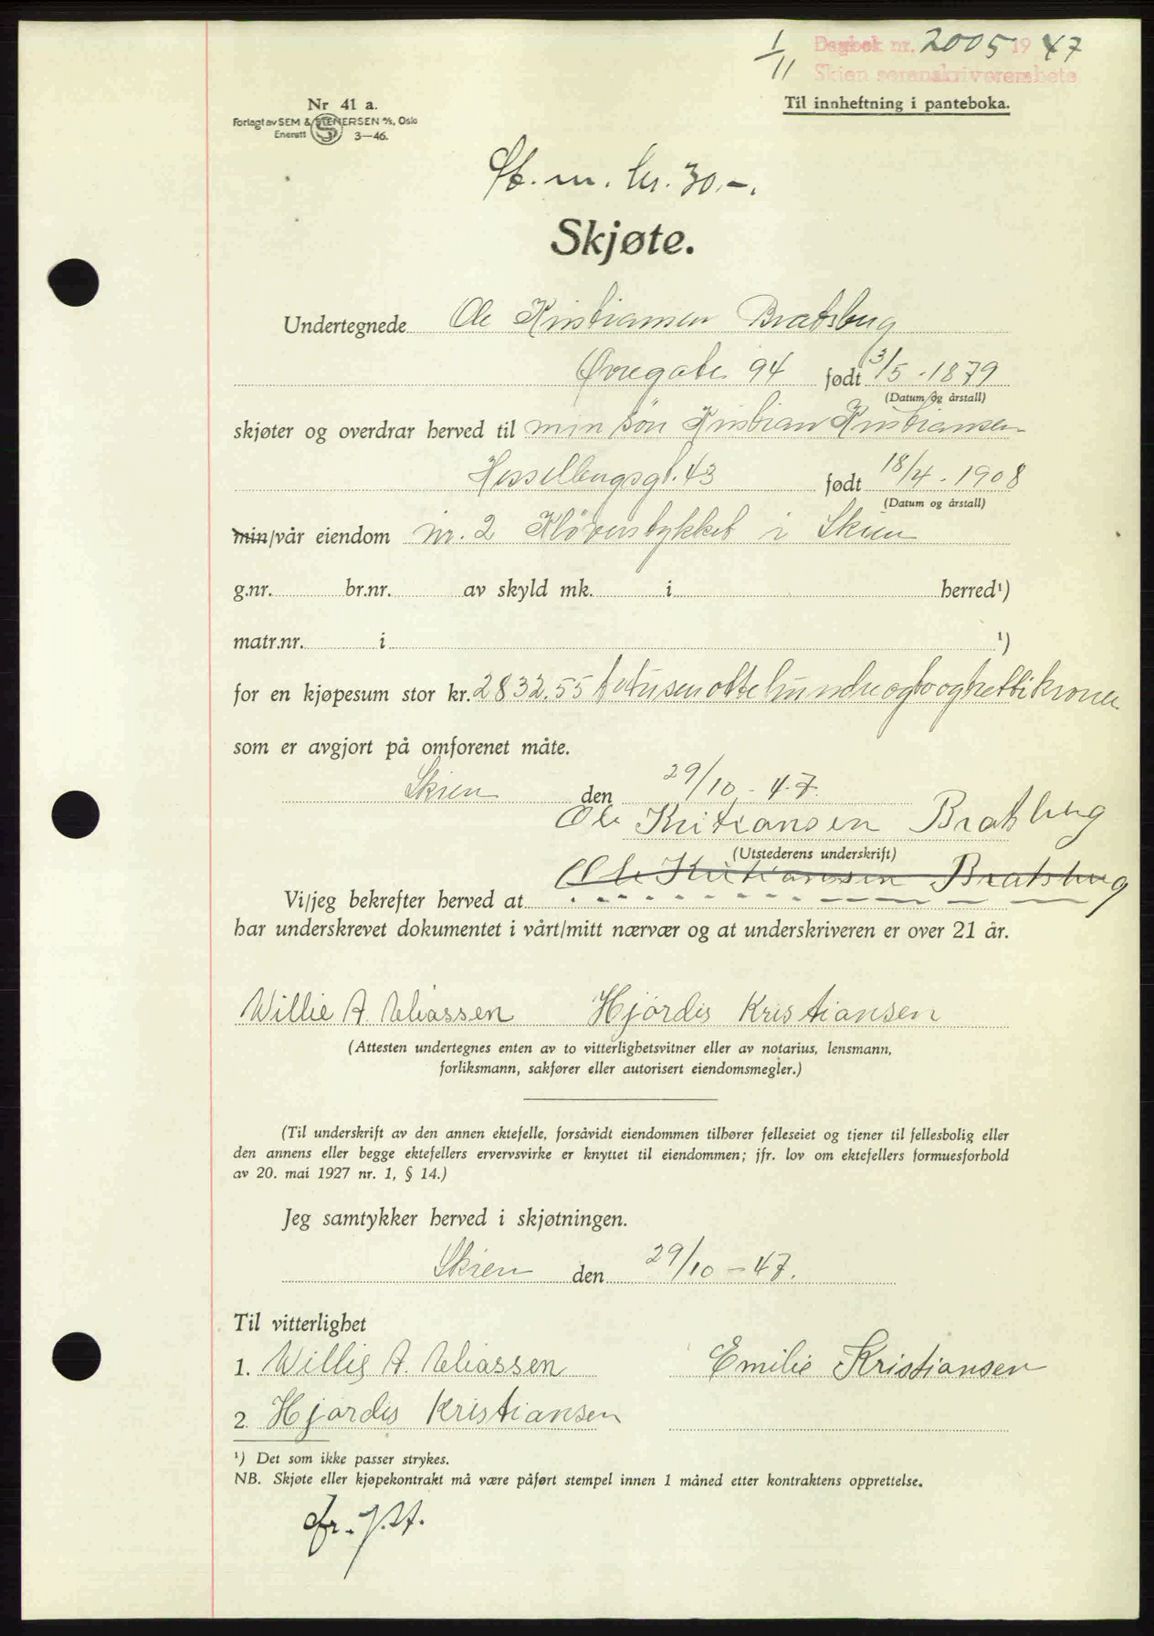 1/11 Dagbok nr. 2005 1947
Skien sorenskriverembete
Til innheftning i panteboka.
Nr 41 a.
Forlagt av SEM & STENERSEN A/S, Oslo
Enerett 3—46.
St. m. kr. 30.-.
Skjøte.
Undertegnede Ole Kristiansen Bratsberg
Øvregate 94 født 3/5 - 1879
(Datum og årstall)
skjøter og overdrar herved til min søn Kristian Kristiansen
Hesselbergsgt. 43 født 18/4 - 1908
(Datum og årstall)
min/vår eiendom nr. 2 Kløverstykket i Skien
g.nr. br.nr. av skyld mk. i herred¹)
matr.nr. i ¹)
for en kjøpesum stor kr. 2832.55 totusenottehundreogtoogtrettikroner
som er avgjort på omforenet måte.
Skien den 29/10 - 47.
Ole Kristiansen Bratsberg
(Utstederens underskrift)
Ole Kristiansen Bratsberg
Vi/jeg bekrefter herved at
har underskrevet dokumentet i vårt/mitt nærvær og at underskriveren er over 21 år.
Willie A. Eliassen Hjørdis Kristiansen
(Attesten undertegnes enten av to vitterlighetsvitner eller av notarius, lensmann,
forliksmann, sakfører eller autorisert eiendomsmegler.)
(Til underskrift av den annen ektefelle, forsåvidt eiendommen tilhører felleseiet og tjener til fellesbolig eller
den annens eller begge ektefellers ervervsvirke er knyttet til eiendommen; jfr. lov om ektefellers formuesforhold
av 20. mai 1927 nr. 1, § 14.)
Jeg samtykker herved i skjøtningen.
Skien den 29/10 - 47.
Til vitterlighet
1. Willie A. Eliassen Emilie Kristiansen
2. Hjørdis Kristiansen
¹) Det som ikke passer strykes.
NB. Skjøte eller kjøpekontrakt må være påført stempel innen 1 måned etter kontraktens opprettelse.